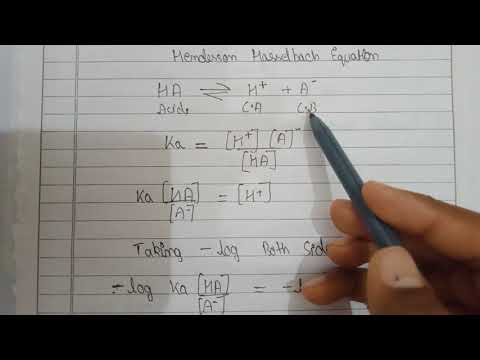 Henderson Hasselbach Equation
HA ⇌ H⁺ + A⁻
Acids C·A C·B
Ka = [H⁺] [A]⁻ / [HA]
Ka [HA] / [A⁻] = [H⁺]
Taking -log Both Side
-log Ka [HA] / [A⁻] =